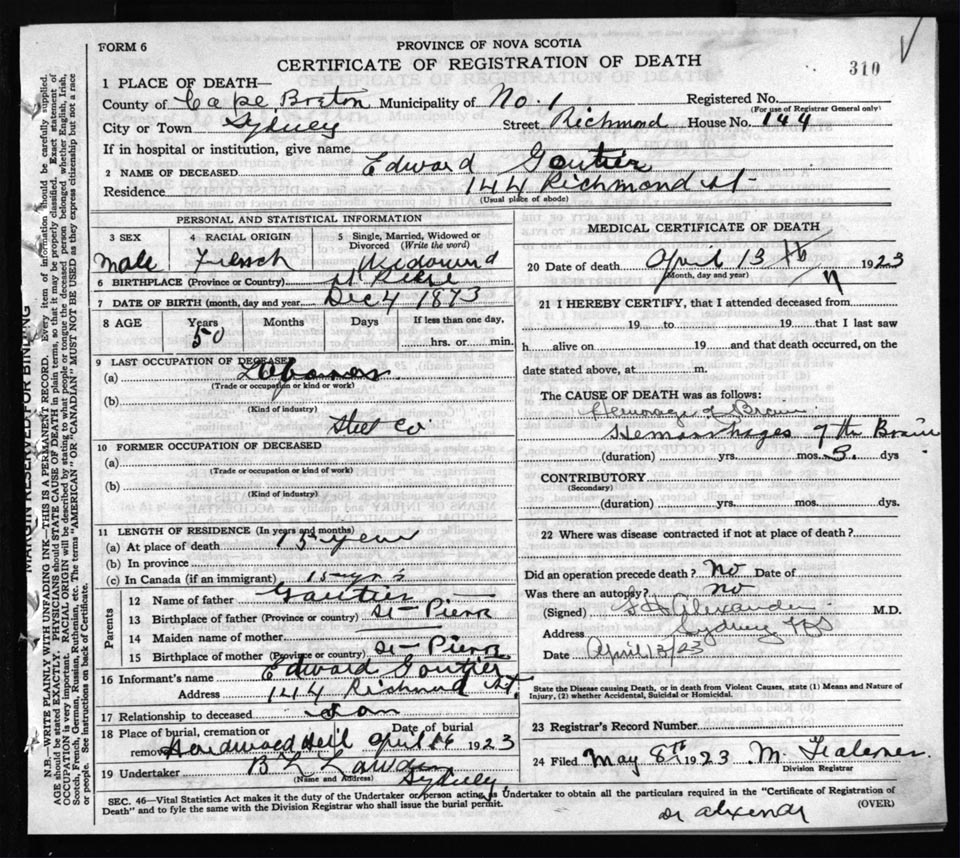 FORM 6
PROVINCE OF NOVA SCOTIA
CERTIFICATE OF REGISTRATION OF DEATH
310
1 PLACE OF DEATH—
County of Cape Breton Municipality of No. 1 Registered No.
(For use of Registrar General only)
City or Town Sydney Street Richmond House No. 144
If in hospital or institution, give name
2 NAME OF DECEASED Edward Gautier
Residence 144 Richmond St.
(Usual place of abode)
PERSONAL AND STATISTICAL INFORMATION
3 SEX 4 RACIAL ORIGIN 5 Single, Married, Widowed or Divorced (Write the word)
Male French
6 BIRTHPLACE (Province or Country)
7 DATE OF BIRTH (month, day and year) Dec 4 1873
8 AGE Years Months Days If less than one day,
50 hrs. or min.
9 LAST OCCUPATION OF DECEASED
(a)
(Trade or occupation or kind of work)
(b)
(Kind of industry)
Steel Co
10 FORMER OCCUPATION OF DECEASED
(a)
(Trade or occupation or kind of work)
(b)
(Kind of industry)
11 LENGTH OF RESIDENCE (In years and months)
(a) At place of death 15 year
(b) In province
(c) In Canada (if an immigrant) 15 yrs
Parents
12 Name of father Gautier
13 Birthplace of father (Province or country) St-Pierr
14 Maiden name of mother
15 Birthplace of mother (Province or country) St-Pierr
16 Informant's name Edward Gautier
Address 144 Richmond St.
17 Relationship to deceased Son
18 Place of burial, cremation or removal Date of burial
April 1923
19 Undertaker
(Name and Address) Sydney
MEDICAL CERTIFICATE OF DEATH
20 Date of death April 13 th 1923
(Month, day and year)
21 I HEREBY CERTIFY, that I attended deceased from
19 to 19 that I last saw
h alive on 19 and that death occurred, on the
date stated above, at m.
The CAUSE OF DEATH was as follows:
Hemorage of Brain
Hemorrhages of the Brain
(duration) yrs. mos. 3. dys
CONTRIBUTORY
(Secondary)
(duration) yrs. mos. dys.
22 Where was disease contracted if not at place of death?
Did an operation precede death? No Date of
Was there an autopsy? no
(Signed) Alexander M.D.
Address Sydney NS
Date April 13/23
State the Disease causing Death, or in death from Violent Causes, state (1) Means and Nature of
Injury, (2) whether Accidental, Suicidal or Homicidal.
23 Registrar's Record Number
24 Filed May 8th 1923 M.
Division Registrar
SEC. 46—Vital Statistics Act makes it the duty of the Undertaker or person acting as Undertaker to obtain all the particulars required in the "Certificate of Registration of
Death" and to fyle the same with the Division Registrar who shall issue the burial permit. (OVER)
MARGIN RESERVED FOR BINDING
N.B.—WRITE PLAINLY WITH UNFADING INK—THIS IS A PERMANENT RECORD. Every item of information should be carefully supplied.
AGE should be stated EXACTLY. PHYSICIANS should STATE CAUSE OF DEATH in plain terms, so that it may be properly classified. Exact statement of
OCCUPATION is very important. RACIAL ORIGIN will be described by stating to what people or tongue the deceased person belonged whether English, Irish,
Scotch, French, German, Russian, Ruthenian, etc. The terms "AMERICAN" OR "CANADIAN" MUST NOT BE USED as they express citizenship but not a race
or people. See instructions on back of Certificate.